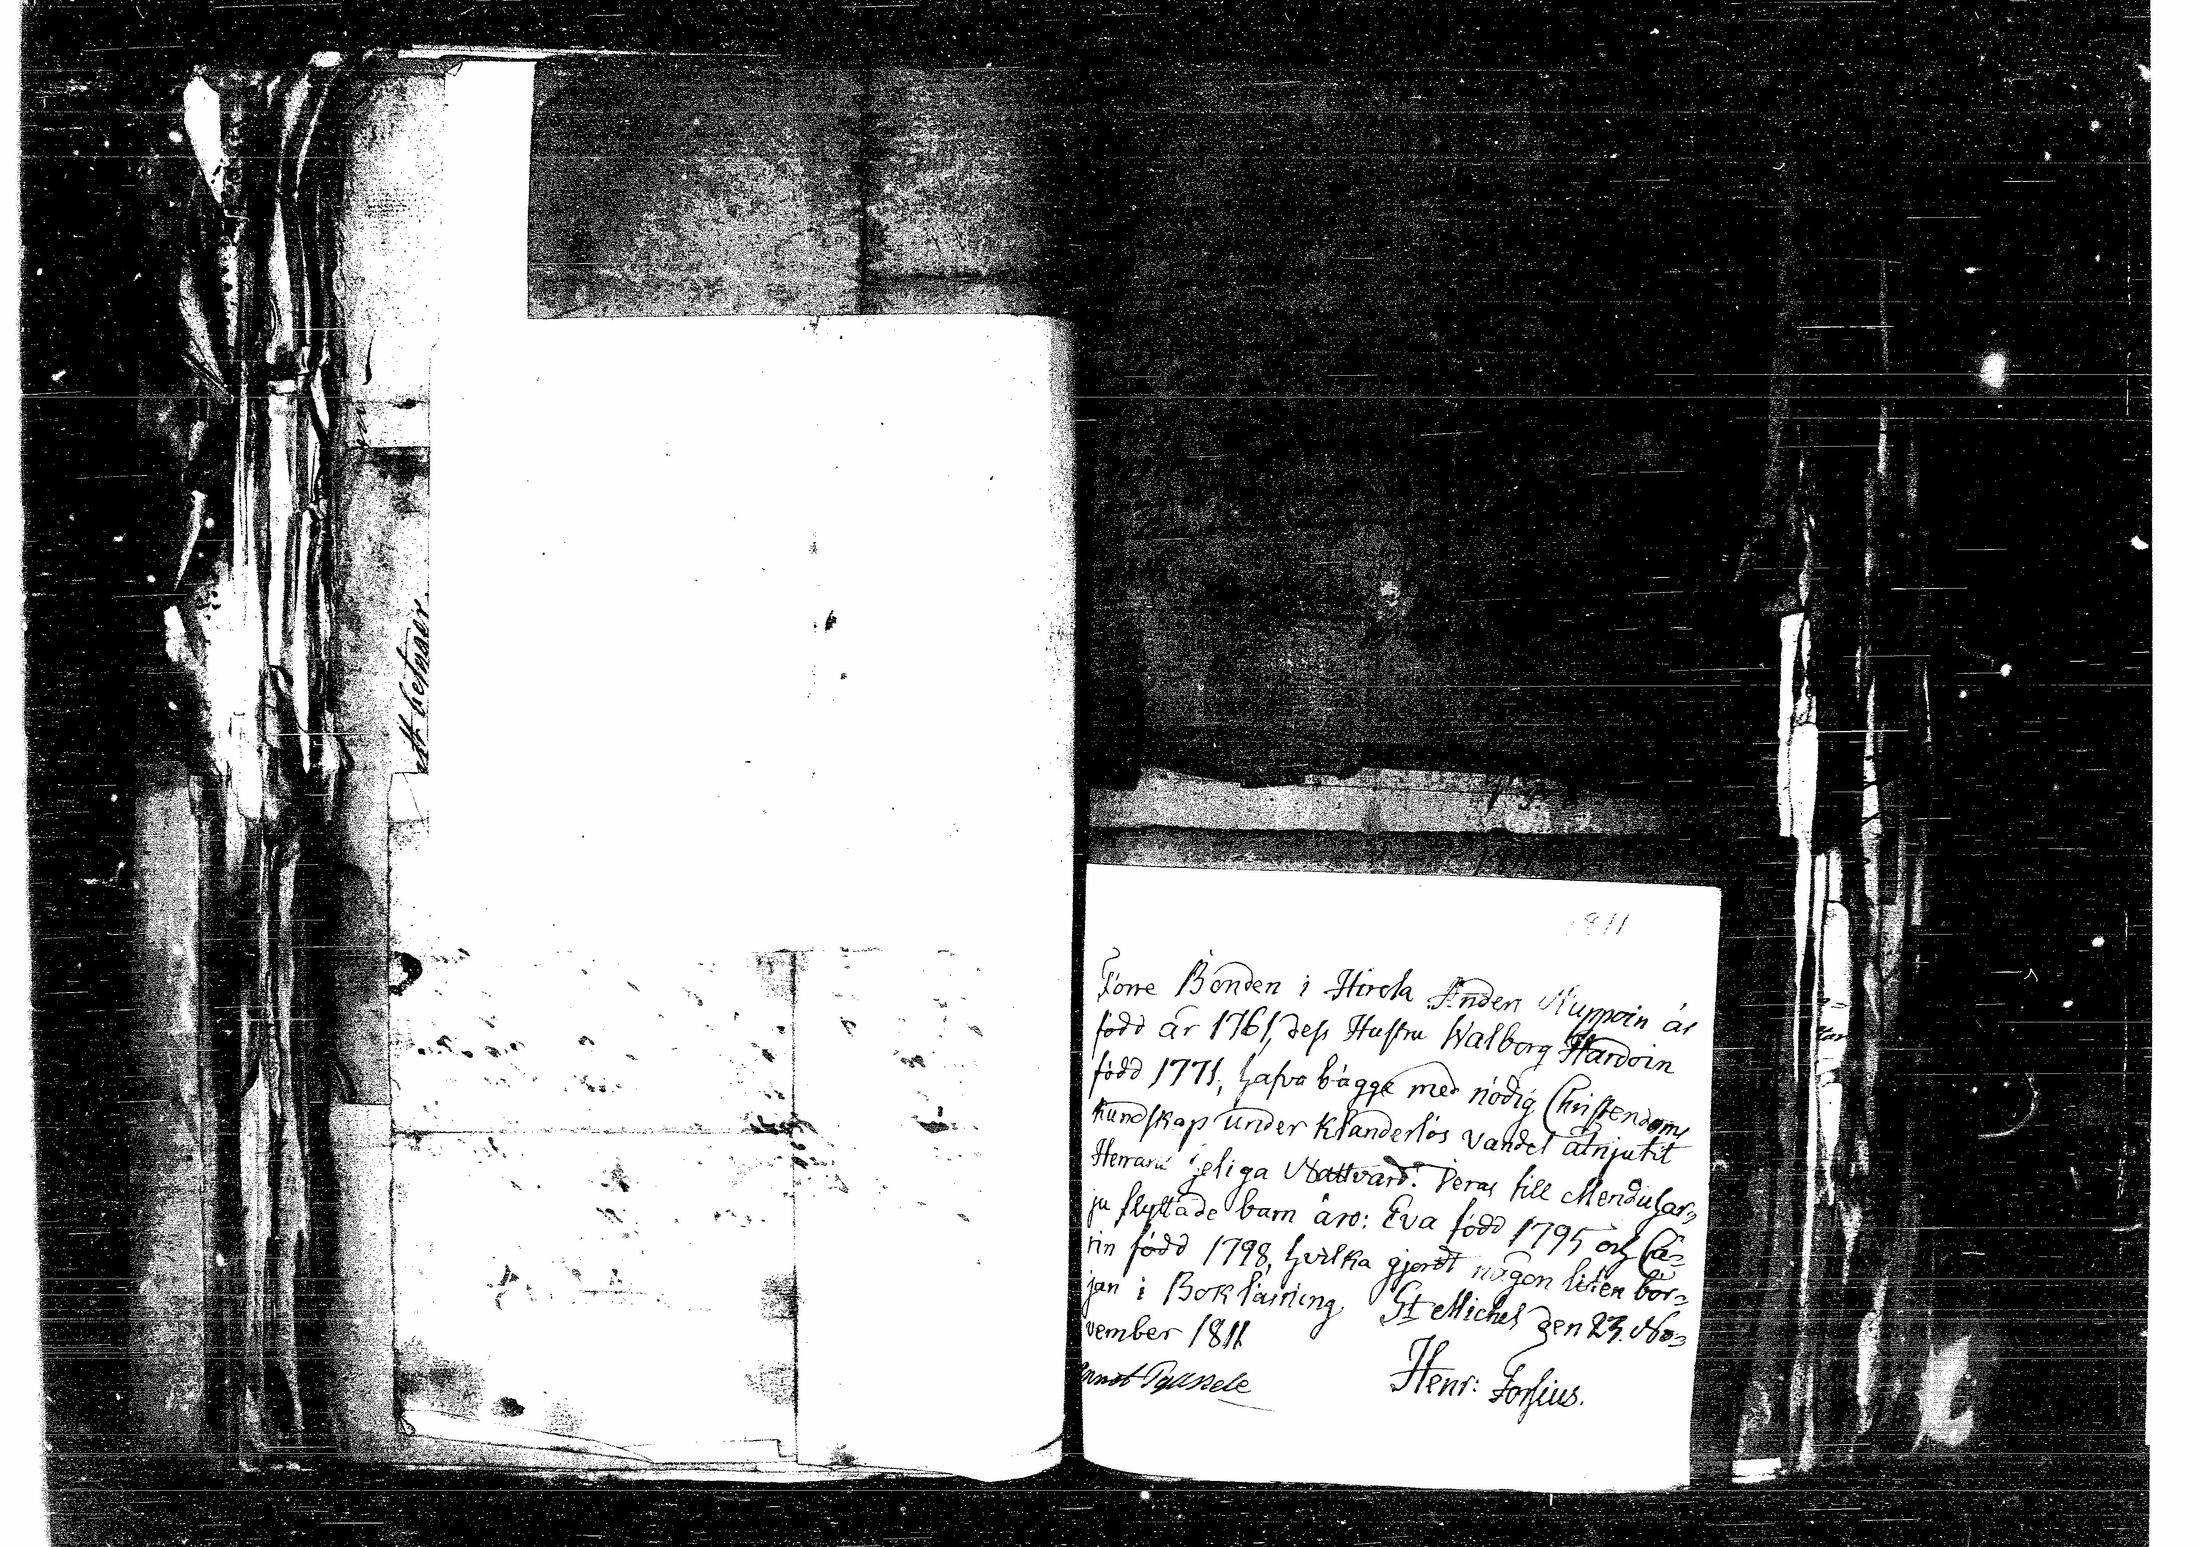 att besnaer
1811
Förre Bonden i Hirola Anders Nuppoin är
född år 1761, dess Hustru Walborg Hardoin
född 1771, hafva bägge med nödig Christendoms
kundskap under klanderlös vandel åtnjutit
Herrans heliga Nattvard. Deras till Menduhar=
ju flyttade barn äro: Eva född 1795 och Ca=
rin född 1798, hvilka gjordt någon liten bör=
jan i Boklärning. St Michel den 23. No=
vember 1811
Henr: Forsius.